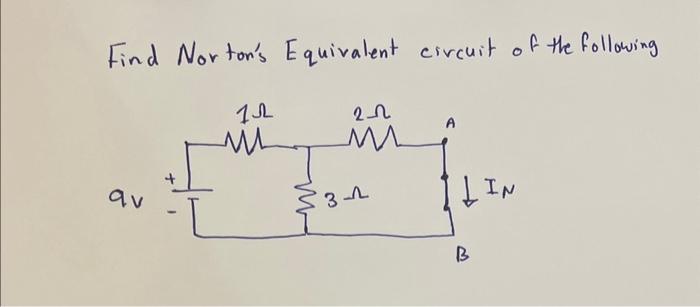 Find Norton's Equivalent circuit of the following
1Ω 2Ω A
+
9v 3Ω ↓ IN
-
B